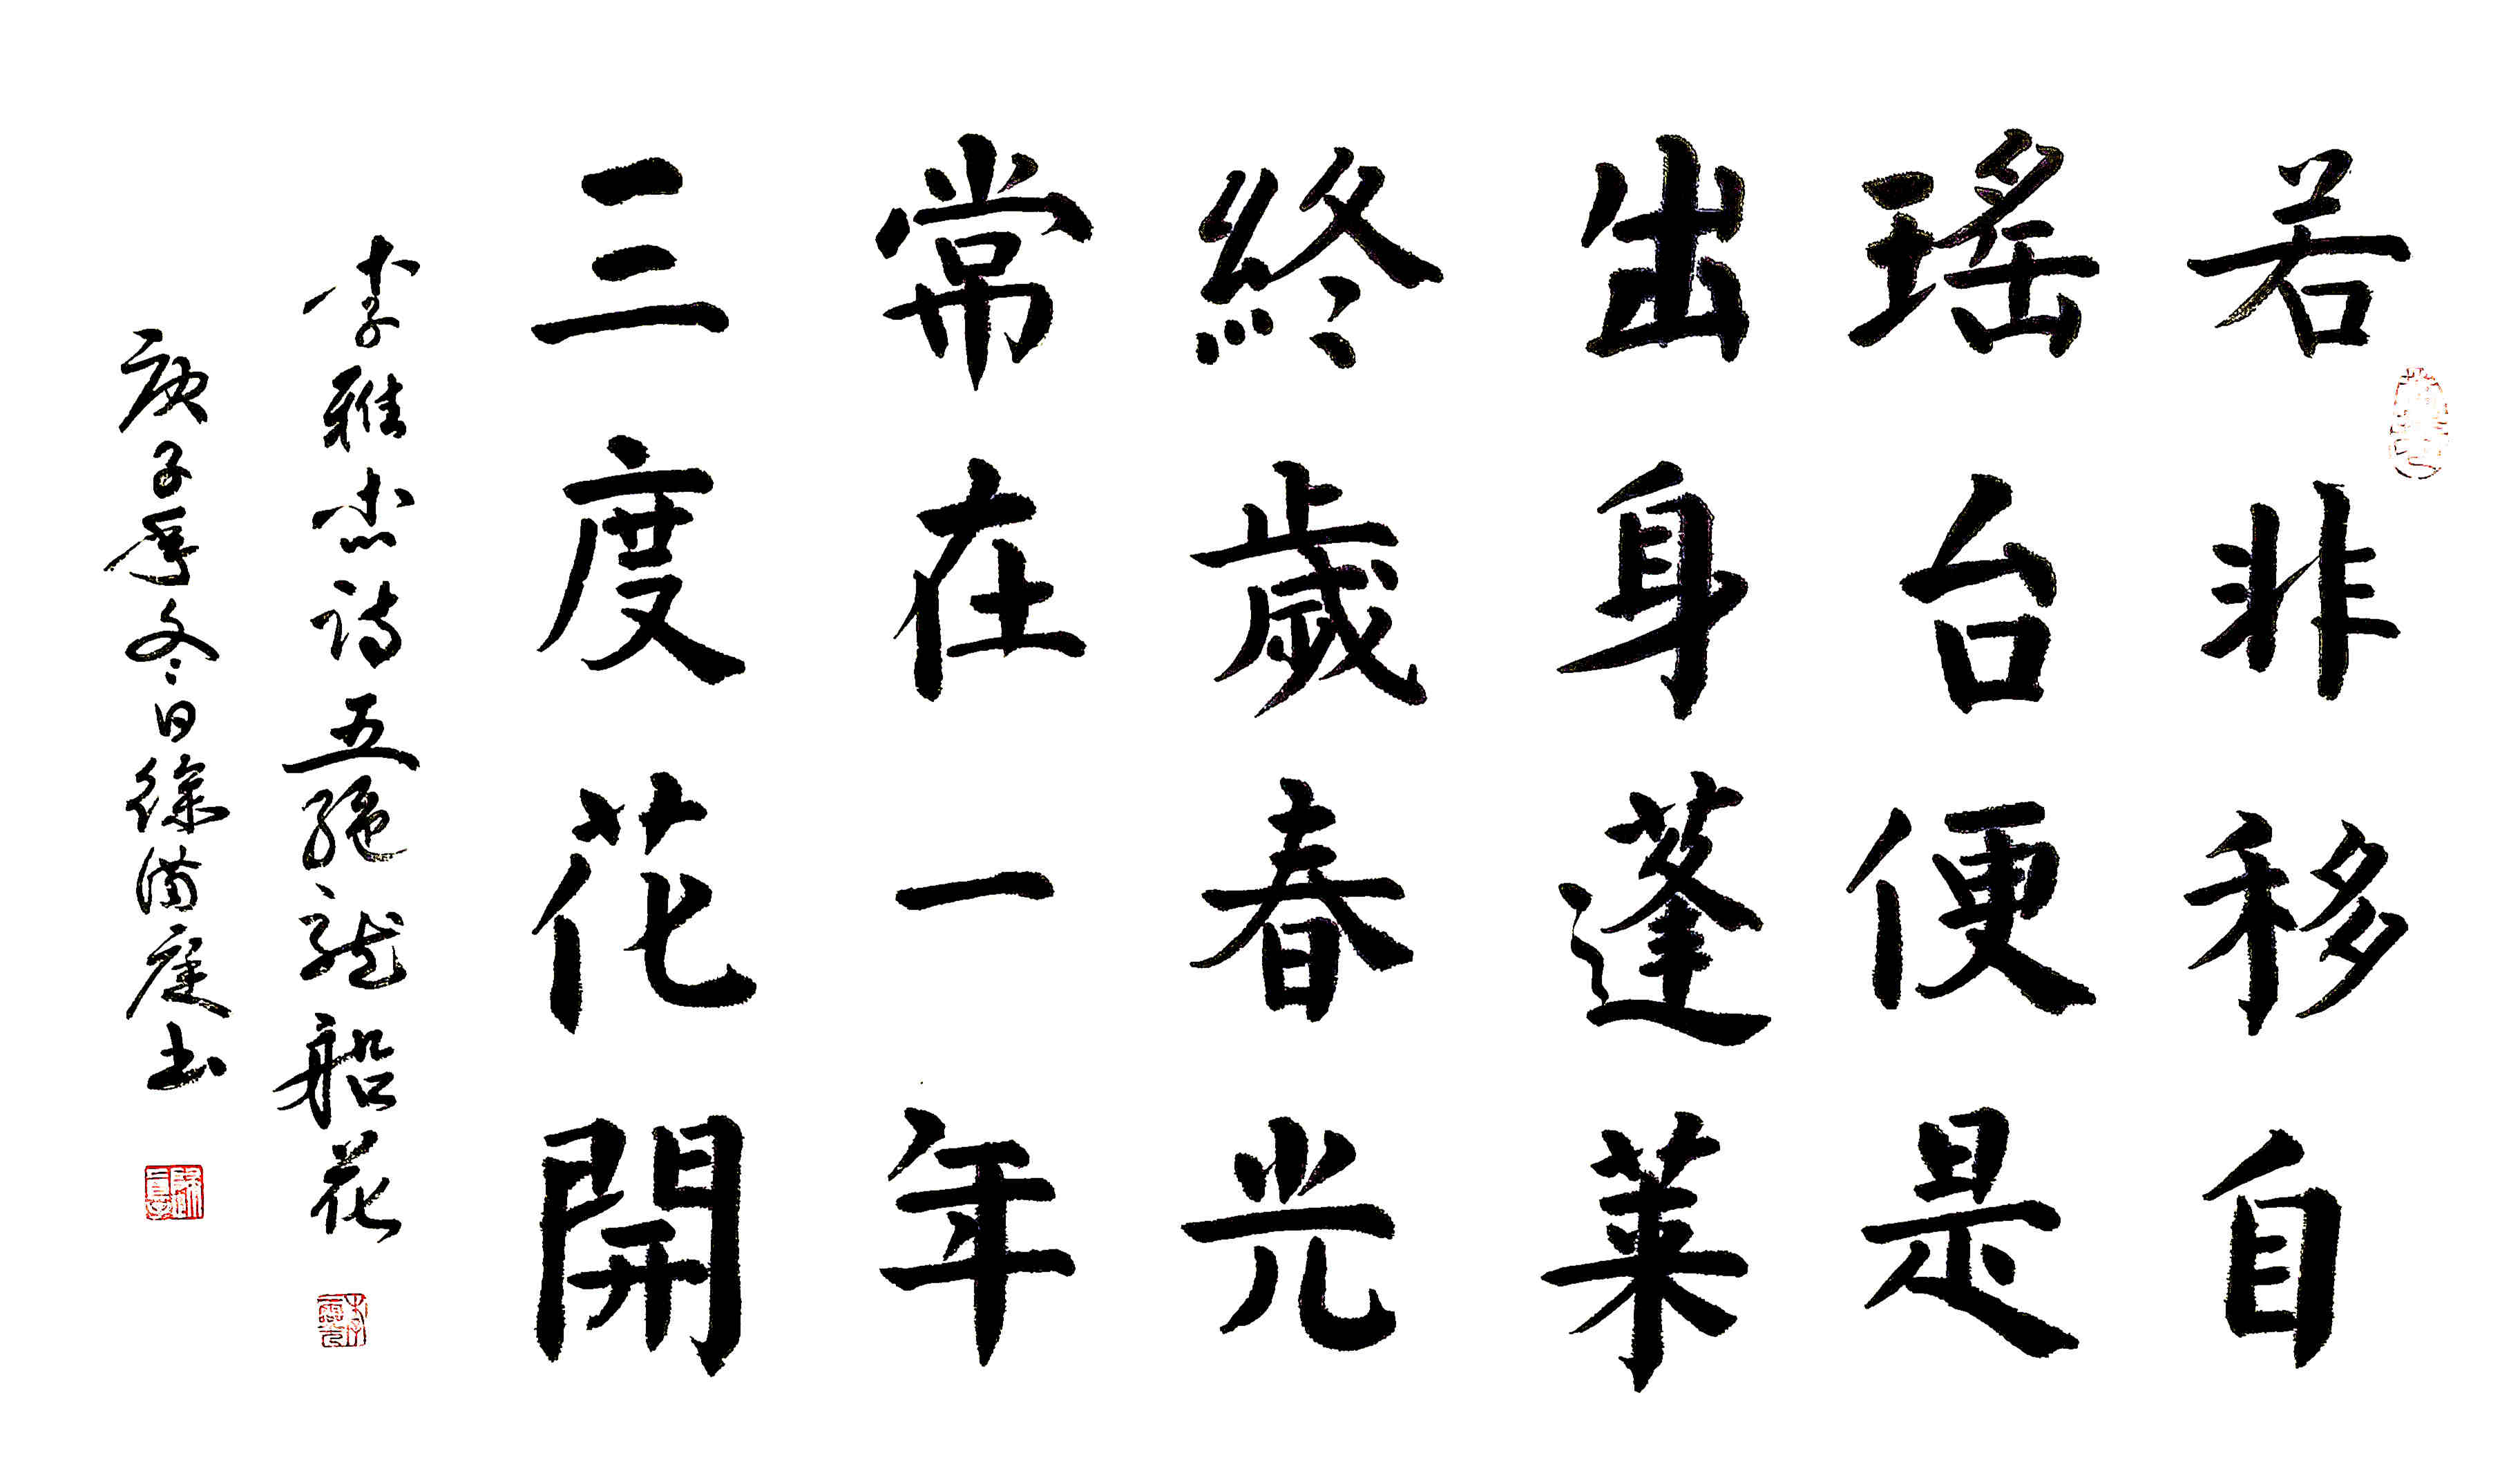 若非移自
瑶台便是
出身蓬莱
終歲春光
常在一年
三度花開
李雅杰诗五绝龙船花
庚子年冬日徐满庭书